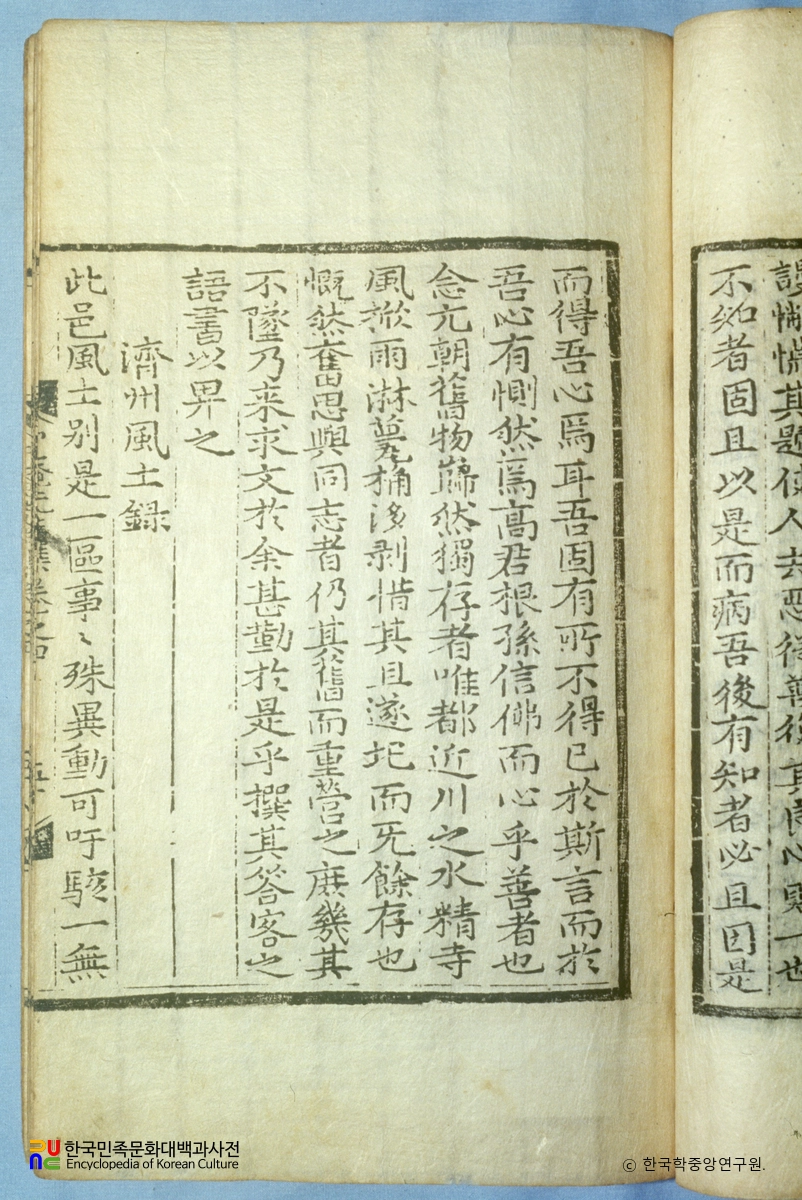 其題使人去惡從善復其良心則一也
不知者固且以是而病吾後有知者必且因是
而得吾心焉耳吾固有所不得已於斯言而於
吾心有惻然焉高君根孫信佛而心乎善者也
念元朝舊物巋然獨存者唯都近川之水精寺
風掀雨淋甍桷浸剥惜其且遂圮而旡餘存也
慨然奮思與同志者仍其舊而重營之庶幾其
不墜乃来求文於余甚勤於是乎撰其答客之
語書以畀之
濟州風土録
此邑風土别是一區事〻殊異動可吁駭一無
한국민족문화대백과사전
Encyclopedia of Korean Culture
ⓒ 한국학중앙연구원.